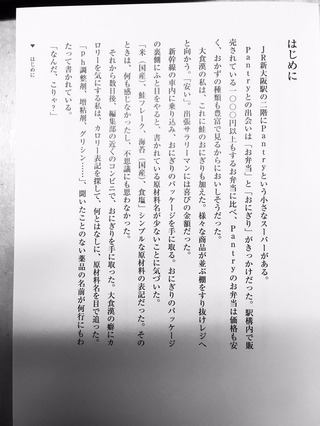 はじめに
ＪＲ新大阪駅の二階にＰａｎｔｒｙという小さなスーパーがある。
Ｐａｎｔｒｙとの出会いは「お弁当」と「おにぎり」がきっかけだった。駅構内で販
売されている一〇〇〇円以上もするお弁当に比べ、Ｐａｎｔｒｙのお弁当は価格も安
く、おかずの種類も豊富で見るからにおいしそうだった。
大食漢の私は、これに鮭のおにぎりも加えた。様々な商品が並ぶ棚をすり抜けレジへ
と向かう。「安い」。出張サラリーマンには喜びの金額だった。
新幹線の車内に乗り込み、おにぎりのパッケージを手に取る。おにぎりのパッケージ
の裏側にふと目をやると、書かれている原材料名が少ないことに気づいた。
「米（国産）、鮭フレーク、海苔（国産）、食塩」シンプルな原材料の表記だった。その
ときは、何も感じなかったし、不思議にも思わなかった。
それから数日後、編集部の近くのコンビニで、おにぎりを手に取った。大食漢の癖にカ
ロリーを気にする私は、カロリー表記を探して、何とはなしに、原材料名を目で追った。
「ｐｈ調整剤、増粘剤、グリシン……」聞いたことのない薬品の名前が何行にもわ
たって書かれている。
「なんだ、こりゃ？」
▼ はじめに